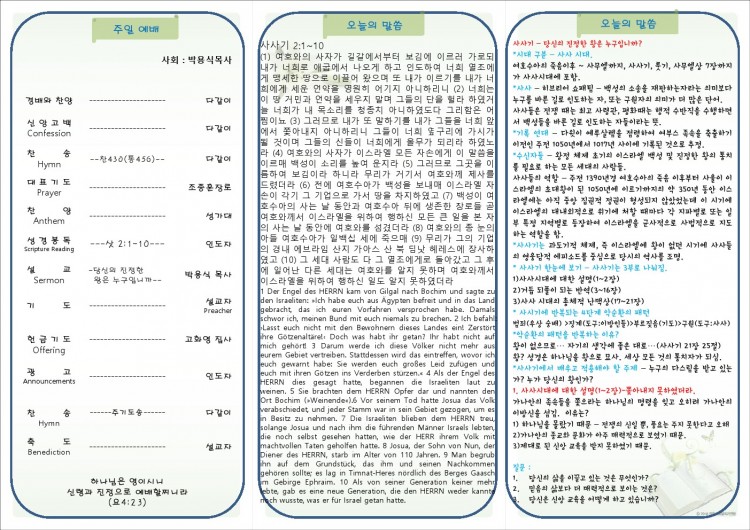 주일 예배
사회 : 박용식목사
경배와 찬양 ------------------ 다같이
신앙고백 ------------------ 다같이
Confession
찬 송 --찬430(통456)-- 다같이
Hymn
대표기도 ------------------ 조종문장로
Prayer
찬 양 ------------------ 성가대
Anthem
성경봉독 ---삿 2:1-10--- 인도자
Scripture Reading
설 교 -당신의 진정한 박용식 목사
Sermon 왕은 누구입니까--
기 도 ------------------ 설교자
Preacher
헌금기도 ------------------ 고화영 집사
Offering
광 고 ------------------ 인도자
Announcements
찬 송 -----주기도송----- 다같이
Hymn
축 도 ------------------ 설교자
Benediction
하나님은 영이시니
신령과 진정으로 예배할찌니라
(요4:23)
오늘의 말씀
사사기 2:1~10
(1) 여호와의 사자가 길갈에서부터 보김에 이르러 가로되
내가 너희로 애굽에서 나오게 하고 인도하여 너희 열조에
게 맹세한 땅으로 이끌어 왔으며 또 내가 이르기를 내가 너
희에게 세운 언약을 영원히 어기지 아니하리니 (2) 너희는
이 땅 거민과 언약을 세우지 말며 그들의 단을 헐라 하였거
늘 너희가 내 목소리를 청종치 아니하였도다 그리함은 어
찜이뇨 (3) 그러므로 내가 또 말하기를 내가 그들을 너희 앞
에서 쫓아내지 아니하리니 그들이 너희 옆구리에 가시가
될 것이며 그들의 신들이 너희에게 올무가 되리라 하였노
라 (4) 여호와의 사자가 이스라엘 모든 자손에게 이 말씀을
이르매 백성이 소리를 높여 운지라 (5) 그러므로 그곳을 이
름하여 보김이라 하니라 무리가 거기서 여호와께 제사를
드렸더라 (6) 전에 여호수아가 백성을 보내매 이스라엘 자
손이 각기 그 기업으로 가서 땅을 차지하였고 (7) 백성이 여
호수아의 사는 날 동안과 여호수아 뒤에 생존한 장로들 곧
여호와께서 이스라엘을 위하여 행하신 모든 큰 일을 본 자
의 사는 날 동안에 여호와를 섬겼더라 (8) 여호와의 종 눈의
아들 여호수아가 일백십 세에 죽으매 (9) 무리가 그의 기업
의 경내 에브라임 산지 가아스 산 북 딤낫 헤레스에 장사하
였고 (10) 그 세대 사람도 다 그 열조에게로 돌아갔고 그 후
에 일어난 다른 세대는 여호와를 알지 못하며 여호와께서
이스라엘을 위하여 행하신 일도 알지 못하였더라
1 Der Engel des HERRN kam von Gilgal nach Bochim und sagte zu
den Israeliten: »Ich habe euch aus Ägypten befreit und in das Land
gebracht, das ich euren Vorfahren versprochen habe. Damals
schwor ich, meinen Bund mit euch niemals zu brechen. 2 Ich befahl:
›Lasst euch nicht mit den Bewohnern dieses Landes ein! Zerstört
ihre Götzenaltäre!‹ Doch was habt ihr getan? Ihr habt nicht auf
mich gehört! 3 Darum werde ich diese Völker nicht mehr aus
eurem Gebiet vertreiben. Stattdessen wird das eintreffen, wovor ich
euch gewarnt habe: Sie werden euch großes Leid zufügen und
euch mit ihren Götzen ins Verderben stürzen.« 4 Als der Engel des
HERRN dies gesagt hatte, begannen die Israeliten laut zu
weinen. 5 Sie brachten dem HERRN Opfer dar und nannten den
Ort Bochim (»Weinende«).6 Vor seinem Tod hatte Josua das Volk
verabschiedet, und jeder Stamm war in sein Gebiet gezogen, um es
in Besitz zu nehmen. 7 Die Israeliten blieben dem HERRN treu,
solange Josua und nach ihm die führenden Männer Israels lebten,
die noch selbst gesehen hatten, wie der HERR ihrem Volk mit
machtvollen Taten geholfen hatte. 8 Josua, der Sohn von Nun, der
Diener des HERRN, starb im Alter von 110 Jahren. 9 Man begrub
ihn auf dem Grundstück, das ihm und seinen Nachkommen
gehören sollte; es lag in Timnat-Heres nördlich des Berges Gaasch
im Gebirge Ephraim. 10 Als von seiner Generation keiner mehr
lebte, gab es eine neue Generation, die den HERRN weder kannte
noch wusste, was er für Israel getan hatte.
오늘의 말씀
사사기 – 당신의 진정한 왕은 누구입니까?
*시대 구분 – 사사 시대.
여호수아의 죽음이후 ~ 사무엘까지, 사사기, 룻기, 사무엘상 7장까지
가 사사시대에 포함.
*사사 – 히브리어 쇼패팀 – 백성의 소송을 재판하는자라는 의미보다
누구를 바른 길로 인도하는 자, 또는 구원자의 의미가 더 많은 단어.
사사들은 전쟁 때는 최고 사령관, 평화때는 행적 수반직을 수행하면
서 백성들을 바른 길로 인도하는 자들이라는 뜻.
*기록 연대 – 다윗이 예루살렘을 점령하여 여부스 족속을 죽출하기
이전인 주전 1050년에서 1017년 사이에 기록된 것으로 추정.
*수신자들 – 왕정 체제 초기의 이스라엘 백성 및 진정한 왕의 통치
를 필요로 하는 모든 세대의 사람들.
사사들의 역할 – 주전 1390년경 여호수아의 죽음 이후부터 사울이 이
스라엘의 초대왕이 된 1050년에 이르기까지의 약 350년 동안 이스라
엘에는 아직 중앙 집권적 정권이 형성되지 않았었는데 이 시기에
이스라엘의 대내외적으로 위기에 처할 때마다 각 지파별로 또는 일
부 특정 지역별로 등장하여 이스라엘을 군사적으로 사법적으로 지도
하는 역할을 함.
*사사기는 과도기적 체제, 즉 이스라엘에 왕이 없던 시기에 사사들
의 영웅담적 에피소드를 중심으로 당시의 역사를 조명.
* 사사기 한눈에 보기 – 사사기는 3부로 나뉘짐.
1)사사시대에 대한 설명(1~2장)
2)거듭 되풀이 되는 반역(3-16장)
3)사사 시대의 총체적 난맥상(17~21장)
* 사시기에 반복되는 4단계 악순환의 패턴
범죄(우상 숭배) >징계(도구:이방인들)>부르짖음(기도)>구원(도구:사사)
*악순환의 패턴을 반복하는 이유?
왕이 없으므로… 자기의 생각에 좋은 대로…(사사기 21장 25절)
왕? 성경은 하나님을 왕으로 묘사. 세상 모든 것의 통치자가 되심.
*사사기에서 배우고 적용해야 할 주제 – 누구의 다스림을 받고 있는
가? 누가 당신의 왕인가?
1. 사사시대에 대한 설명(1~2장)-쫓아내지 못하였더라.
가나안의 족속들을 쫓으라는 하나님의 명령을 잊고 오히려 가나안의
이방신을 섬김. 이유는?
1) 하나님을 몰랐기 때문 – 전쟁의 신일 뿐, 풍요는 주지 못한다고 오해
2)가나안의 종교와 문화가 아주 매력적으로 보였기 때문.
3)제대로 된 신앙 교육을 받지 못하였기 때문.
질문 :
1. 당신의 삶을 이끌고 있는 것은 무엇인가?
2. 믿음의 삶보다 더 매력적으로 보이는 것은?
3. 당신은 신앙 교육을 어떻게 하고 있습니까?